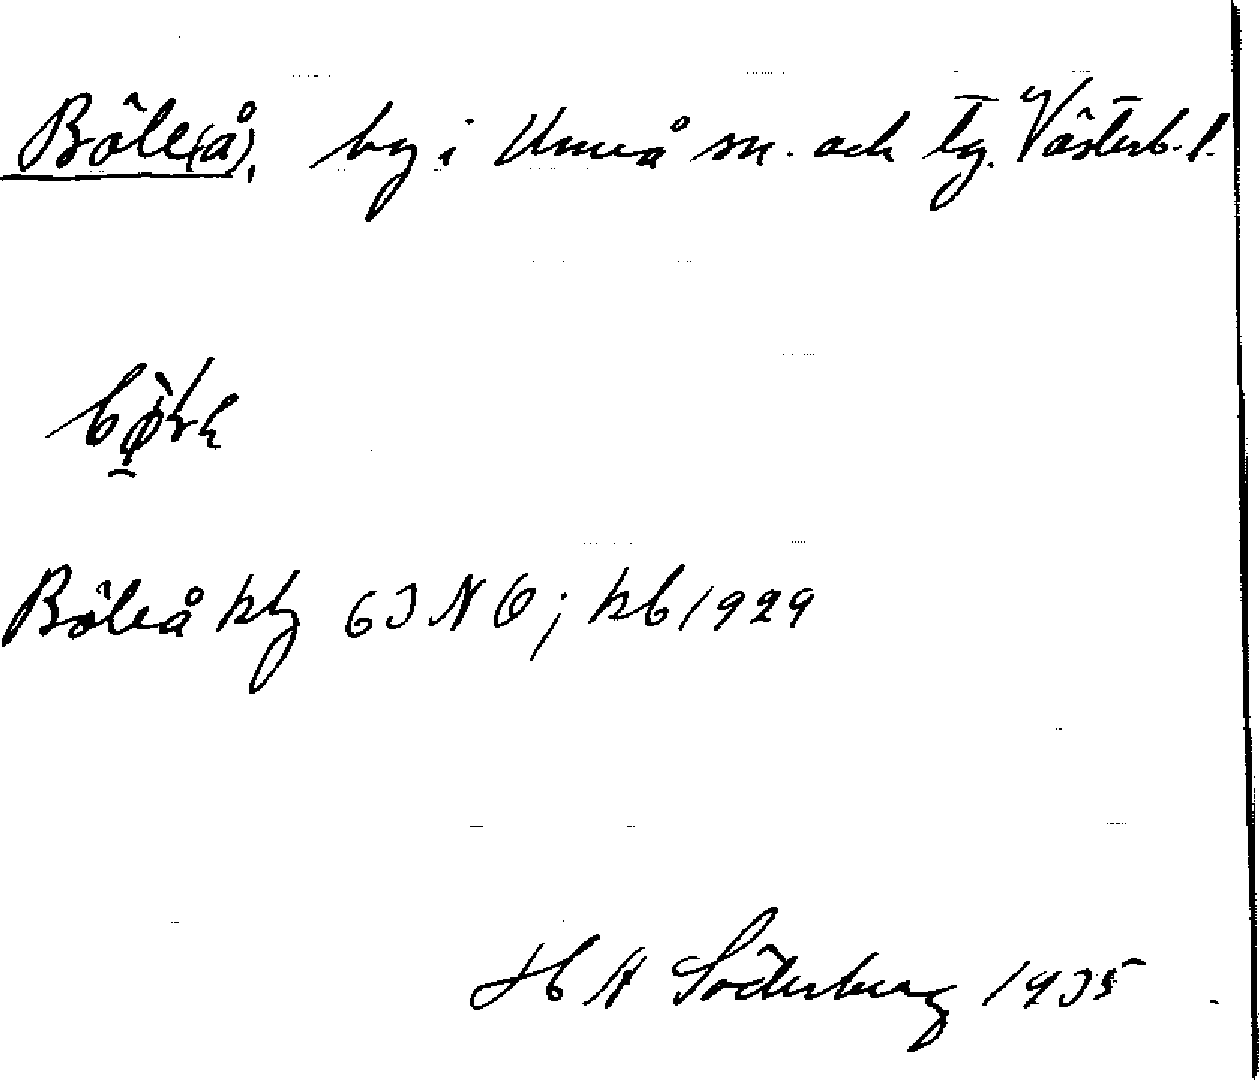 Böle(å), by i Umeå sn. och tg. Västerb. l.
Böleå kbg 63 NO; kb 1929
H Söderberg 1935